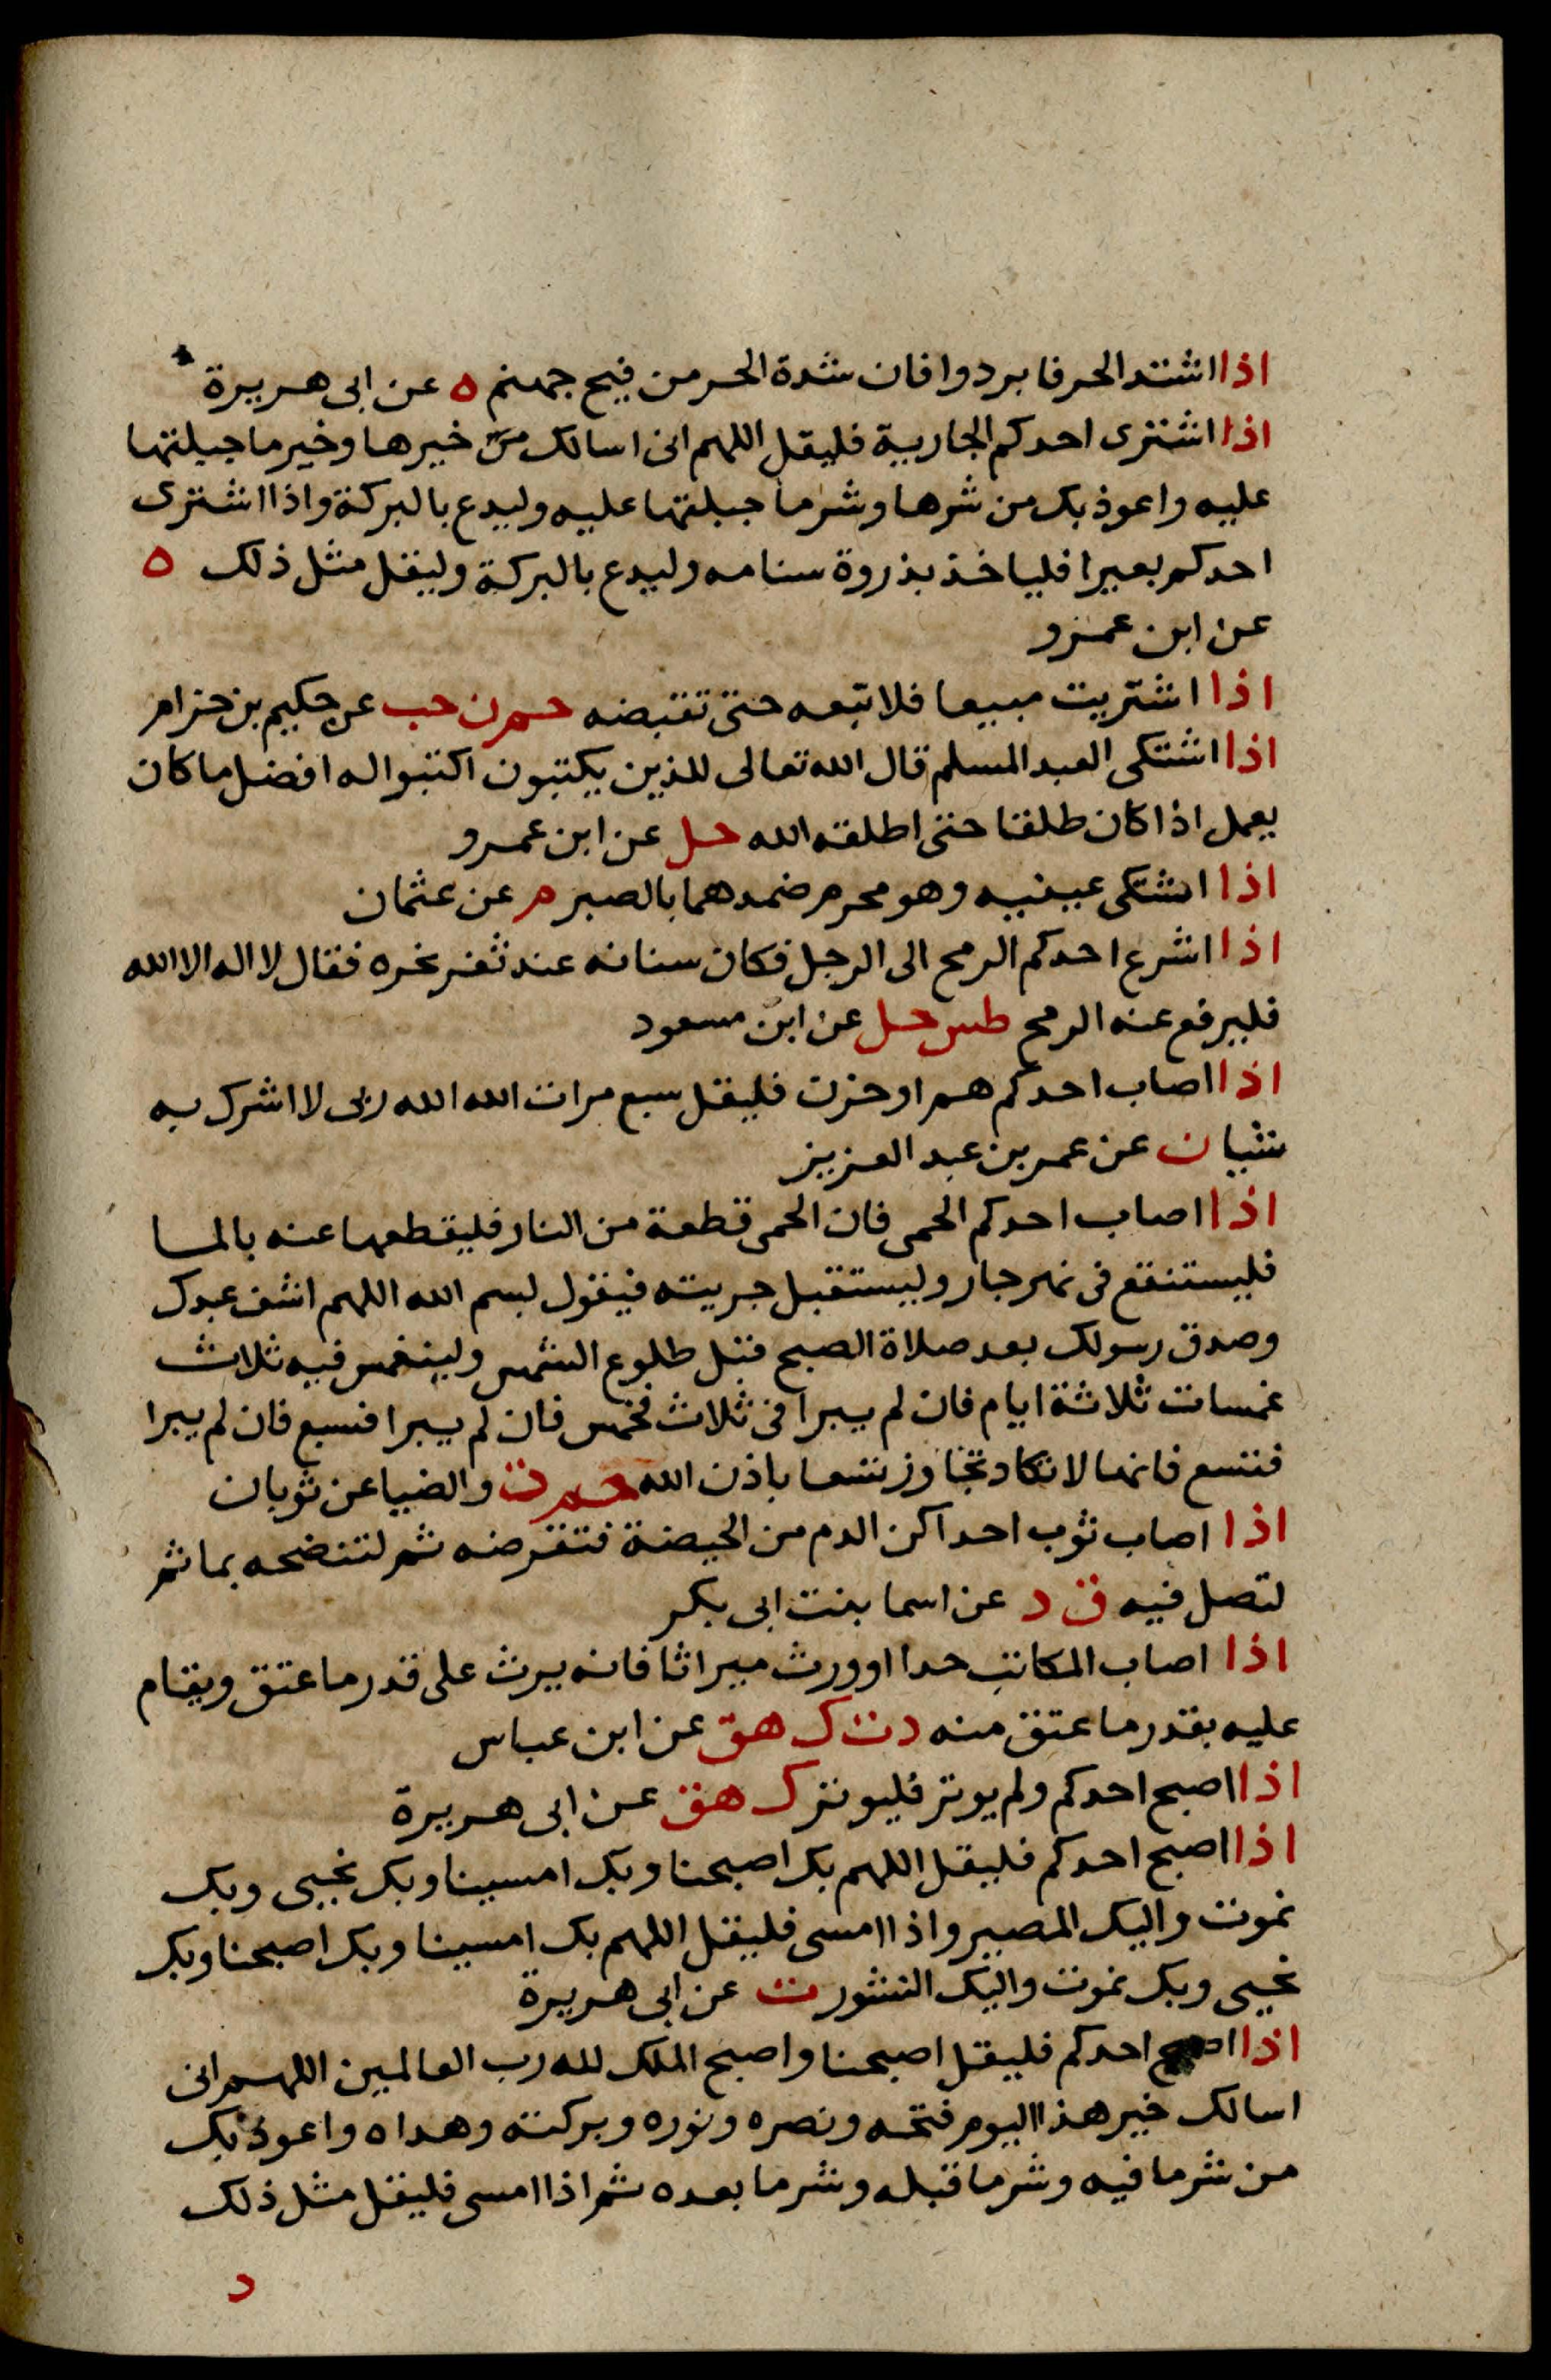 اذا اشتد الحر فابردوا فان شدة الحر من فيح جهنم ه عن ابى هريرة
اذا اشترى احدكم الجارية فليقل اللهم انى اسالك من خيرها وخير ما جبلتها
عليه واعوذ بك من شرها وشر ما جبلتها عليه وليدع بالبركة واذا اشترى
احدكم بعيرا فلياخذ بذروة سنامه وليدع بالبركة وليقل مثل ذلك ه
عن ابن عمرو
اذا اشتريت مبيعا فلا تبعه حتى تقبضه حم ن حب عن حكيم بن حزام
اذا اشتكى العبد المسلم قال الله تعالى للذين يكتبون اكتبوا له افضل ما كان
يعمل اذا كان طلقا حتى اطلقه الله حل عن ابن عمرو
اذا اشتكى عينيه وهو محرم ضمدهما بالصبر م عن عثمان
اذا اشرع احدكم الرمح الى الرجل فكان سنانه عند ثغر نحره فقال لا اله الا الله
فليرفع عنه الرمح طس حل عن ابن مسعود
اذا اصاب احدكم هم او حزن فليقل سبع مرات الله الله ربى لا اشرك به
شيا ن عن عمر بن عبد العزيز
اذا اصاب احدكم الحمى فان الحمى قطعة من النار فليقطعها عنه بالما
فليستنقع فى نهر جار وليستقبل جريته فيقول بسم الله اللهم اشف عبدك
وصدق رسولك بعد صلاة الصبح قبل طلوع الشمس ولينغمس فيه ثلاث
غمسات ثلاثة ايام فان لم يبرا فى ثلاث فخمس فان لم يبرا فسبع فان لم يبرا
فتسع فانها لا تكاد تجاوز تسعا باذن الله حم ت والضيا عن ثوبان
اذا اصاب ثوب احداكن الدم من الحيضة فتقرضه ثم لتنضحه بما ثم
لتصل فيه ق د عن اسما بنت ابى بكر
اذا اصاب المكاتب حدا او ورث ميراثا فانه يرث على قدر ما عتق ويقام
عليه بقدر ما عتق منه د ت ك هق عن ابن عباس
اذا اصبح احدكم ولم يوتر فليوتر ك هق عن ابى هريرة
اذا اصبح احدكم فليقل اللهم بك اصبحنا وبك امسينا وبك نحيى وبك
نموت واليك المصير واذا امسى فليقل اللهم بك امسينا وبك اصبحنا وبك
نحيى وبك نموت واليك النشور ت عن ابى هريرة
اذا اصبح احدكم فليقل اصبحنا واصبح الملك لله رب العالمين اللهم انى
اسالك خير هذا اليوم فتحه ونصره ونوره وبركته وهداه واعوذ بك
من شر ما فيه وشر ما قبله وشر ما بعده ثم اذا امسى فليقل مثل ذلك
د